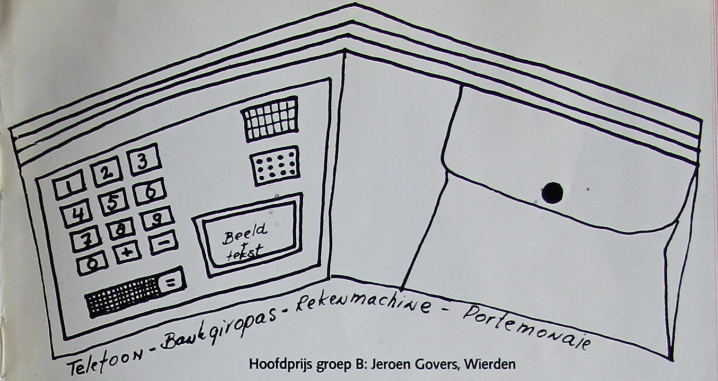 1 2 3
4 5 6
7 8 9
0 + -
=
Beeld
+
tekst
Telefoon - Bankgiropas - Rekenmachine - Portemonaie
Hoofdprijs groep B: Jeroen Govers, Wierden